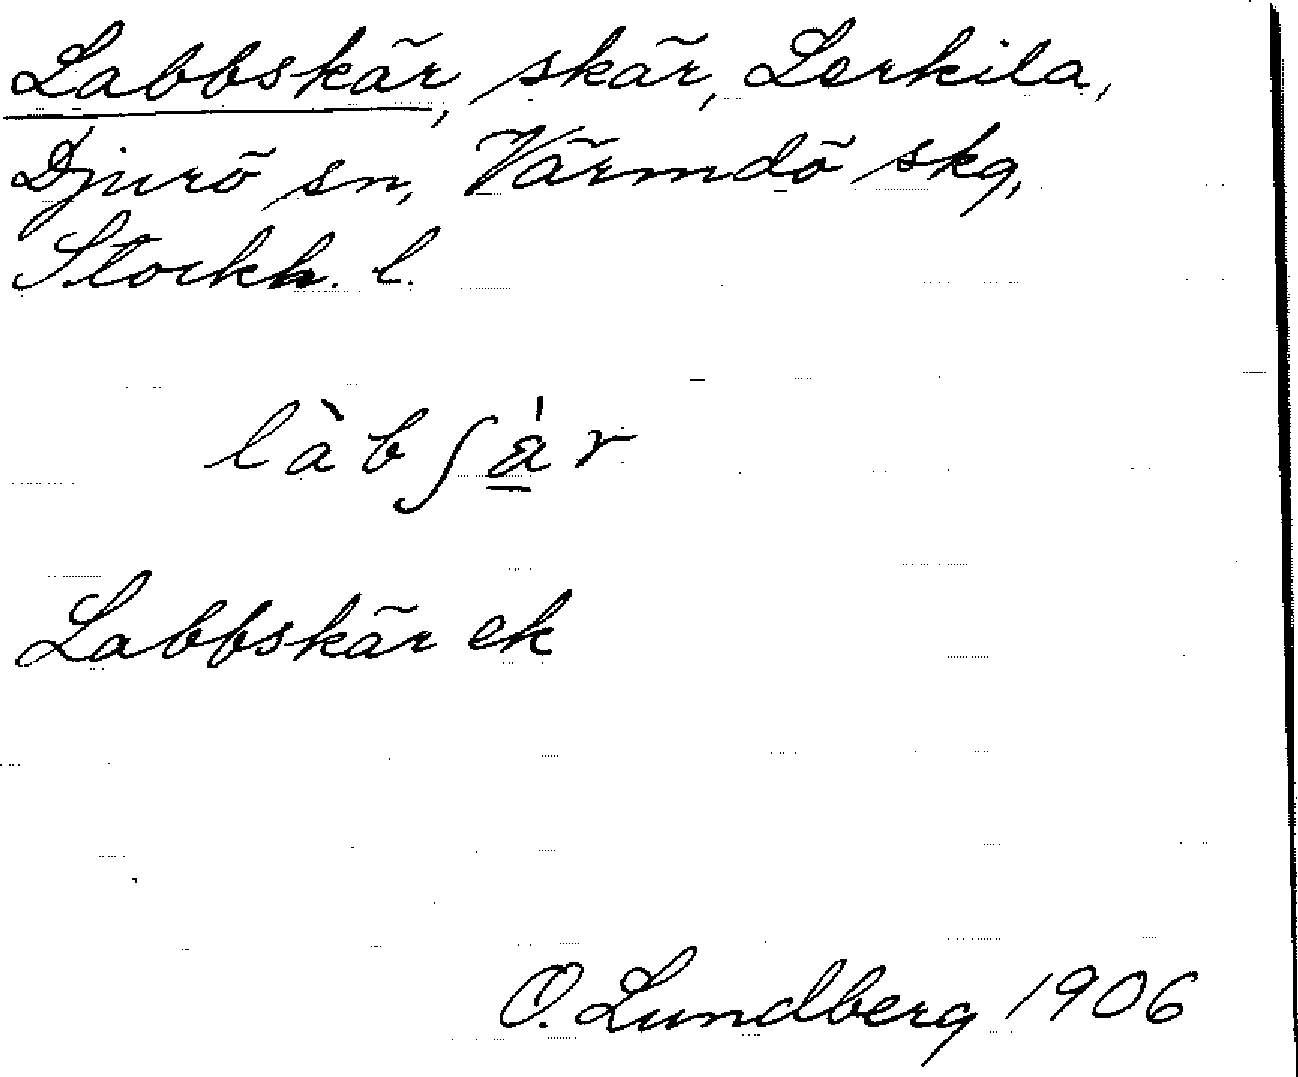 Labbskär, skär, Lerkila,
Djurö sn, Värmdö skg,
Stockh. l.
làbʃä̱̍r
Labbskär ek
O. Lundberg 1906